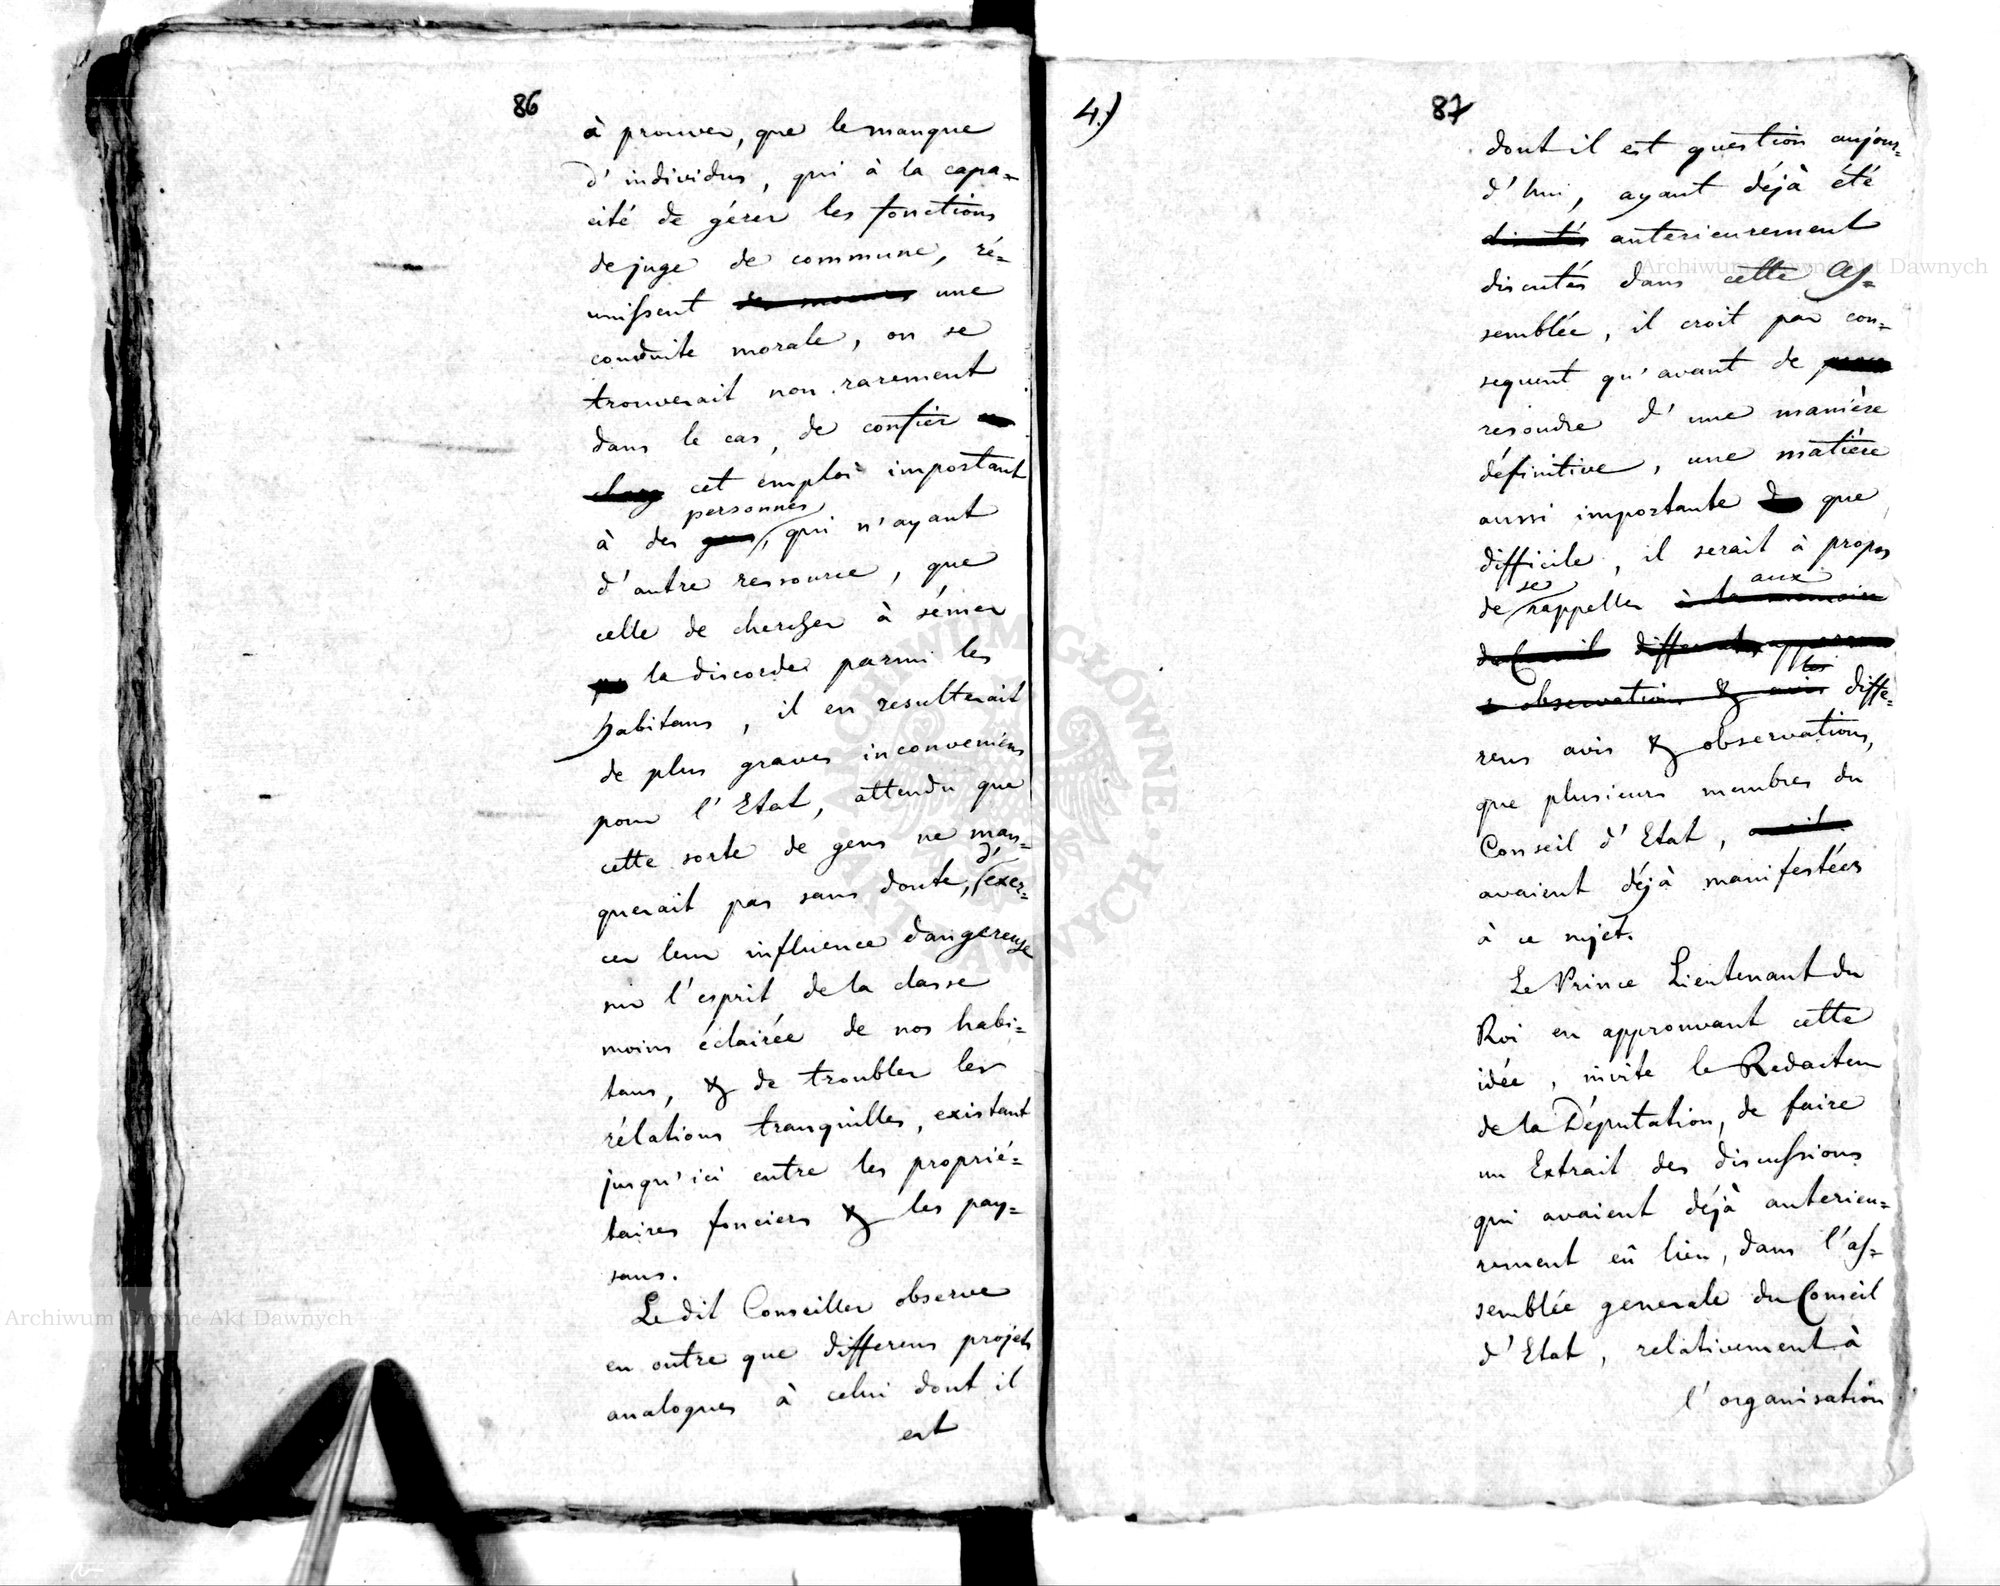 86
à prouver, que le manque
d'individus, qui à la capa=
cité de gérer les fonctions
de juge de commune, ré=
unissent des moeurs une
conduite morale, on se
trouverait non rarement
dans le cas, de confier
charg cet emploi important
personnes
à des gens, qui n'ayant
d'autre ressource, que
celle de chercher à sémer
la discorde parmi les
habitans, il en resulterait
de plus graves inconveniens
pour l'Etat, attendu que
cette sorte de gens ne man=
d'
querait pas sans doute, exer=
cer leur influence dangereuse
sur l'esprit de la classe
moins éclairée de nos habi=
tans, & de troubler les
rélations tranquilles, existant
jusqu'ici entre les proprié=
taires fonciers & les pay=
sans.
Le dit Conseiller observe
en outre que differens projets
analogues à celui dont il
est
4.)
87
dont il est question aujour=
d'hui, ayant déjà été
discutés anterieurement
discutés dans cette As=
semblée, il croit par con=
sequent qu'avant de
resoudre d'une manière
définitive, une matière
aussi importante que
difficile, il serait à propos
se aux
de rappeller à la memoire
du Conseil differents
les
observations & avis diffe=
rens avis & observations,
que plusieurs membres du
Conseil d'Etat,
avaient déjà manifestées
à ce sujet.
Le Prince Lieutenant du
Roi en approuvant cette
idée, invite le Redacteur
de la Députation, de faire
un Extrait des discussions
qui avaient déjà anterieu=
rement eû lieu, dans l'as=
semblée generale du Conseil
d'Etat, relativement à
l'organisation
Archiwum Główne Akt Dawnych
Archiwum Główne Akt Dawnych
ARCHIWUM GŁÓWNE AKT DAWNYCH